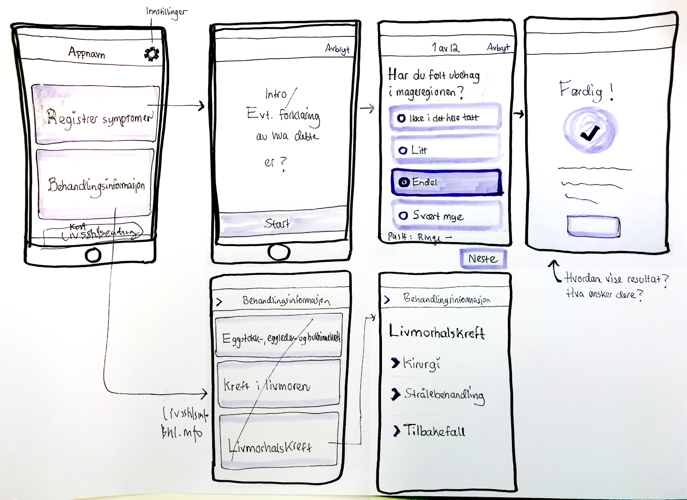 Innstillinger
Appnavn
Registrer symptomer
Behandlingsinformasjon
Kost
Avbryt
Intro/
Evt. forklaring
av hva dette
er?
Start
1 av 12
Avbryt
Har du følt ubehag
i mageregionen?
Ikke i det hele tatt
Litt
Endel
Svært mye
Neste
Færdig!
Hvordan vise resultat?
Hva ønsker dere?
Behandlingsinformasjon
Eggstokk-, eggleder- og bukhinnekreft
Kreft i livmoren
Livmorhalskreft
Behandlingsinformasjon
Livmorhalskreft
Kirurgi
Strålebehandling
Tilbakefall